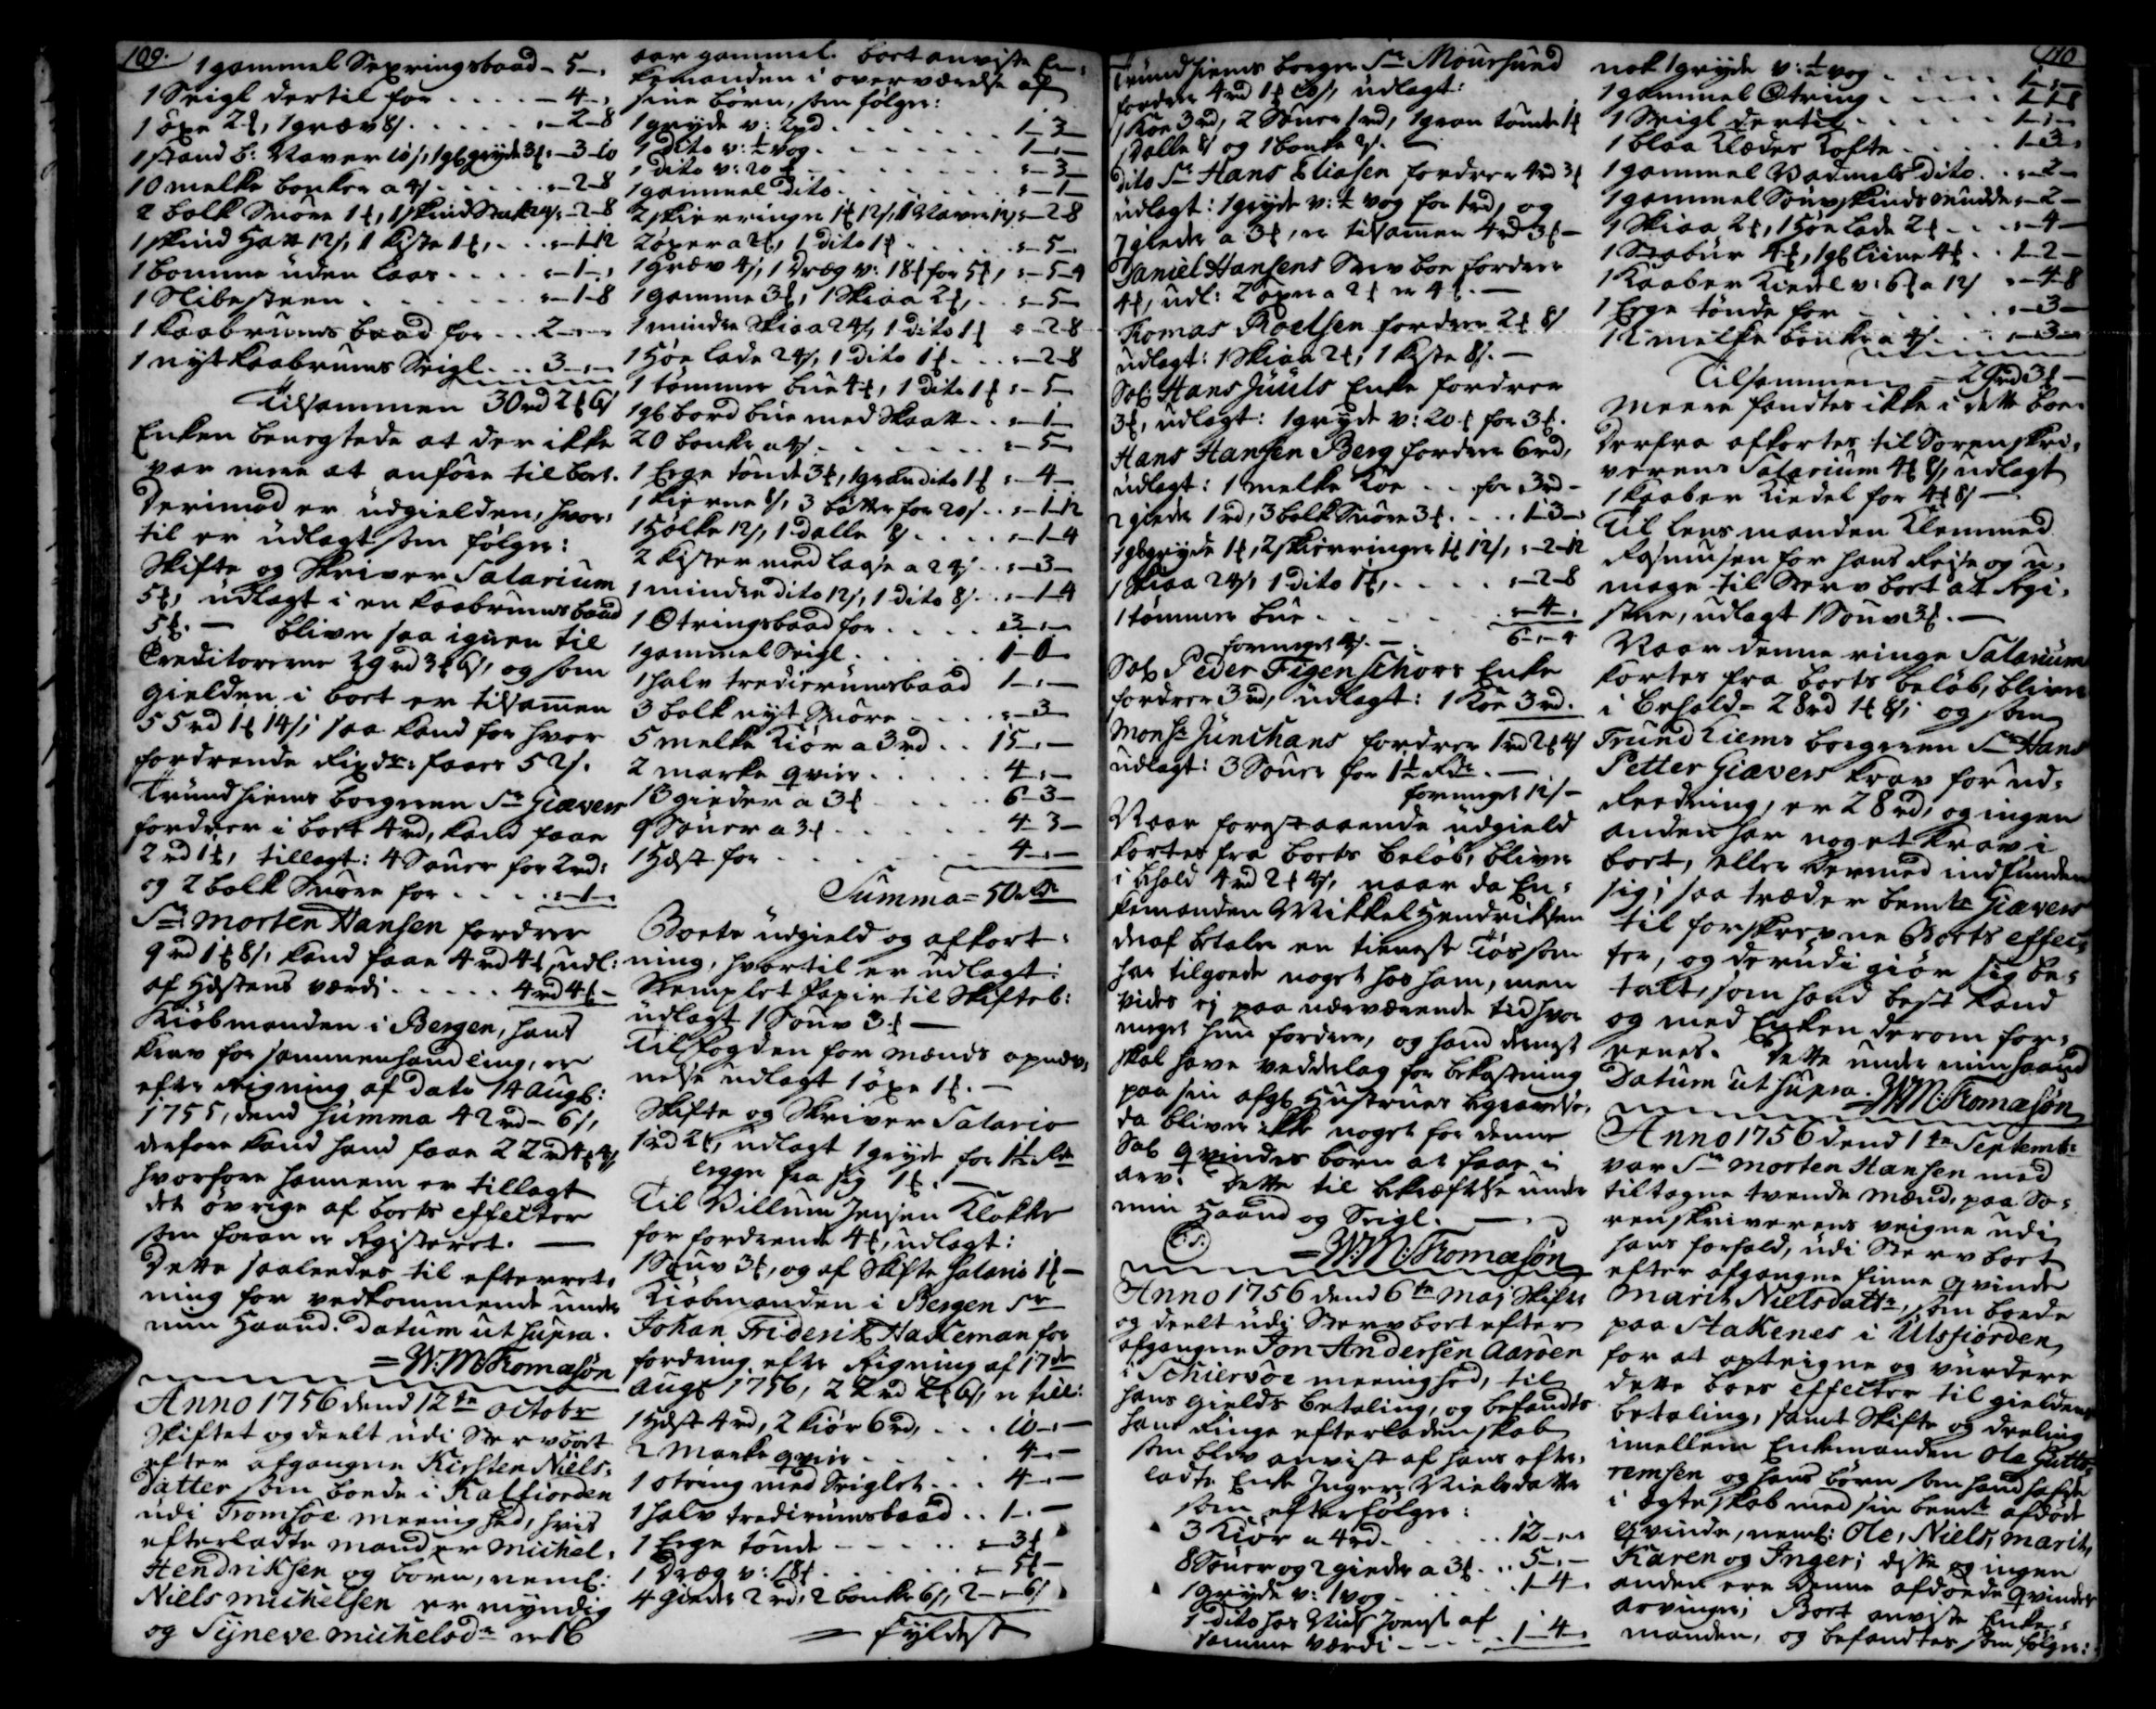 109.
1 gammel Sexringsbaad - 5 -,
1 Seigl dertil for . . . . - 4 -,
1 øxe 2 ℔, 1 græv 8/. . . . . ,- 2 - 8
1 stand b: Naver 10/, 1 gl gryde 3 ℔, - 3 - 10
10 melke bonker a 4/. . . . . ,- 2 - 8
2 bolk Snöre 1 ℔, 1 skind Stak 24/, - 2 - 8
1 skind Hatt 12/, 1 Kiste 1 ℔, . . ,- 1 - 12
1 bomme uden laas . . . . ,- 1 -,
1 Slibesteen . . . . . . ,- 1 - 8
1 Kaabrums baad for . . 2 -,-
1 nyt Kaabrums Seigl . . . 3 -,-
Tilsammen 30 rd 2 ℔ 6/
Enken benegtede at der ikke
var mere at anföre til boet.
Derimod er udgielden, hvor-
til er udlagt som følger:
Skifte og Skriver Salarium
5 ℔, udlagt i en Kaabrums baad
5 ℔. — bliver saa igien til
Creditorerne 29 rd 3 ℔ 6/, og som
gielden i boet er tilsamen
55 rd 1 ℔ 14/, saa kand for hver
fordrende Rixdr: faaes 52/.
Trundhiems borgeren Sr Giævers
fordrer i boet 4 rd, kand faae
2 rd 1 ℔, tillagt: 4 Souer for 2 rd:
og 2 bolk Snöre for . . . . ,- 1 -,
Sr Morten Hansen fordrer
9 rd 1 ℔ 8/, kand faae 4 rd 4 ℔, udl:
af Hæstens værdi . . . . . 4 rd 4 ℔ -
Kiöbmanden i Bergen, hans
Krav for sammenhandling, er
efter Reigning af dato 14 Aug:
1755, dend Summa 42 rd - 6/,
derfore kand hand faae 22 rd 4 ℔ 4/
hvorfore hannem er tillagt
det øvrige af boets effecter
som foran er Registeret. —
Dette saaledes til efterret-
ning for vedkommende under
min Haand. Datum ut supra.
= W: M: Thomasøn
Anno 1756 dend 12te octobr
Skiftet og deelt udi Stervboet
efter afgangne Kirsten Niels-
datter som boede i Kalfiorden
udi Tromsøe meenighed, hvis
efterladte mand er Michel
Hendriksen og børn, neml:
Niels Michelsen er myndig
og Sÿneve Michelsdr er 16
aar gammel. boet anviste En-
kemanden i overværelse af
sine børn, som følger:
1 gryde v: 2 pd . . . . . . . 1 - 3 -
1 dito v: ½ vog . . . . . . . 1 -,-
1 dito v: 20 ℔ . . . . . . . ,- 3 -
1 gammel dito . . . . . . . ,- 1 -
2 skierringer 1 ℔ 12/, 1 Naver 12/, - 2 - 8
2 øxer a 2 ℔, 1 dito 1 ℔ . . . . ,- 5 -
1 græv 4/, 1 Dræg v: 18 ℔ for 5 ℔, ,- 5 - 4
1 gamme 3 ℔, 1 Skiaa 2 ℔, . . ,- 5 -
1 mindre Skiaa 24/, 1 dito 1 ℔ ,- 2 - 8
1 Høelade 24/, 1 dito 1 ℔ . . . ,- 2 - 8
1 tømmer bue 4 ℔, 1 dito 1 ℔ ,- 5 -
1 gl bord bue med Skaatt . . ,- 1 -
20 bonker a 4/. . . . . . ,- 5 -
1 Erge tönde 3 ℔, 1 græn dito 1 ℔ ,- 4 -
1 Kierne 8/, 3 bötter for 20/. . ,- 1 - 12
1 Holke 12/, 1 dalle 8/. . . . ,- 1 - 4
2 Kister med lagse a 24/. . ,- 3 -
1 mindre dito 12/, 1 dito 8/. . . ,- 1 - 4
1 Otringsbaad for . . . . . 3 -,-
1 gammel Seigl . . . . . 1 - 0 -
1 halv tredierumsbaad 1 -,-
3 bolk nyt Snöre . . . . ,- 3 -
5 melke Kiör a 3 rd . . 15 -,-
2 marke qvier . . . . . 4 -,-
13 gieder a 3 ℔ . . . . . 6 - 3 -
9 Souer a 3 ℔ . . . . . 4 - 3 -
1 Hæst for . . . . . . 4 -,-
Summa = 50 rdr
Boets udgield og afkort-
ning, hvortil er udlagt:
Stemplet Papir til Skifteb:
udlagt 1 Souv 3 ℔ —
Til fogden for mænds opnæv-
nelse udlagt 1 øxe 1 ℔. —
Skifte og Skriver Salario
1 rd 2 ℔, udlagt 1 gryde for 1 ½ Rdr
legger fra sig 1 ℔. —
Til Villum Jensen Klokker
for fordrende 4 ℔, udlagt:
1 Souv 3 ℔, og af Skifte Salario 1 ℔ —
Kiöbmanden i Bergen Sr
Johan Friderik Hakeman for
fordring efter Reigning af 17de
Aug 1756, 22 rd 2 ℔ 6/, er till:
1 Hæst 4 rd, 2 Kiör 6 rd, . . . 10 -,-
2 Marke qvier . . . . . 4 -,-
1 otring med Seiglet . . . 4 -,-
1 halv tredierumsbaad . . 1 -,-
1 Erge tönde - - - - . . ,- 3 ℔
1 Dræg v: 18 ℔ . . . . . ,- 5 ℔ -
4 gieder 2 rd, 2 bonker 6/, 2 -,- 6/
= fyldest
Trundhiems borger Sr Moursund
fordrer 4 rd 1 ℔ 10/, udlagt:
1 Koe 3 rd, 2 Souer 1 rd, 1 græn tönde 1 ℔
1 dalle 8/ og 1 bonke 2/. —
dito Sr Hans Eliasen fordrer 4 rd 3 ℔
udlagt: 1 gryde v: ½ vog for 1 rd, og
7 gieder a 3 ℔, er tilsamen 4 rd 3 ℔ —
Daniel Hansens Sterv boe fordrer
4 ℔, udl: 2 øxer a 2 ℔ er 4 ℔. —
Thomas Roelsen fordrer 2 ℔ 8/
udlagt: 1 Skiaa 2 ℔, 1 Kiste 8/. —
Sal: Hans Juuls Enke fordrer
3 ℔, udlagt: 1 gryde v: 20 ℔ for 3 ℔.
Hans Hansen Berg fordrer 6 rd,
udlagt: 1 melke Koe . . for 3 rd -
2 gieder 1 rd, 3 bolk Snöre 3 ℔ . . . 1 - 3 -,
1 gl gryde 1 ℔, 2 skierringer 1 ℔ 12/, ,- 2 - 12
1 Skiaa 24/, 1 dito 1 ℔, . . . . ,- 2 - 8
1 tømmer bue . . . . . . ,- 4 -,
formeget 4/. — 6 -,- 4
Sal: Peder Figenschovs Enke
fordrer 3 rd, udlagt: 1 Koe 3 rd.
Monsr Junchans fordrer 1 rd 2 ℔ 4/
udlagt: 3 Souer for 1 ½ Rdr. —
formeget 12/ -
Naar forestaaende udgield
kortes fra boets beløb, bliver
i behold 4 rd 2 ℔ 4/, naar da En-
kemanden Mikkel Hendriksen
deraf betaler en tieneste Tøs som
har tilgoede noget hos ham, men
vides ej paa nærværende tid hvor
meget hun fordrer, og hand dernest
skal have vedderlag for bekostning
paa sin afgl: Hustrues begravelse,
da bliver ikke noget for denne
Sal: qvindes börn at faae i
arv. Dette til bekræftelse under
min Haand og Seigl. —
L: S:
= W: M: Thomasøn
Anno 1756 dend 6te Maj Skiftet
og deelt udi Stervboet efter
afgangne Jon Andersen Aarøen
i Schiervøe meenighed, til
hans gields betaling, og befandtes
hans Ringe efterladenskab
som blev anvist af hans efter-
ladte Enke Inger Nielsdatter
som efterfølger:
3 Kiör a 4 rd . . . . . 12 -,-
8 Souer og 2 gieder a 3 ℔ . . 5 -,-
1 gryde v: 1 vog . . . . . 1 - 4 -
1 dito hos Niels Joens: af
samme værdi - - - - - . 1 - 4 -
110
nok 1 gryde v: ½ vog . . . . 1 -,-
1 gammel Otring . . . . 1 - 1 - 8
1 Seigl dertil . . . . . 1 -,-
1 blaa Klædes Kofte . . . . 1 - 3 -
1 gammel Vadmels dito . . ,- 2 -
1 gammel Souvskinds mudde ,- 2 -
1 Skiaa 2 ℔, 1 Høelade 2 ℔ . . ,- 4 -
1 Stabur 4 ℔, 1 gl Liine 4 ℔ . . 1 - 2 -
1 Kaaber Kiedel v: 6 ℔ a 12/ ,- 4 - 8
1 Erge tønde for . . . . . ,- 3 -
12 melke bonker a 4/. . . ,- 3 -
Tilsammen = 29 rd 3 ℔ —
meere fandtes ikke i dette boe.
Derfra afkortes til Sorenskri-
verens Salarium 4 ℔ 8/, udlagt
1 Kaaber Kiedel for 4 ℔ 8/ —
Til lensmanden Klemmed
Rasmusen for hans Reise og u-
mage til Stervboet at Regi-
strere, udlagt 1 Souv 3 ℔. —
Naar denne ringe Salarium
kortes fra boets beløb, bliver
i Behold = 28 rd 1 ℔ 8/, og som
Trundhiems borgeren Sr Hans
Petter Giævers Krav for ud-
Reedning, er 28 rd, og ingen
anden har noget Krav i
boet, eller dermed indfunden
sig; saa træder bemte Giævers
til forskrevne Boets effec-
ter, og derudi giør sig be-
talt, som hand best kand
og med Enken derom for-
eenes. Dette under min haand
Datum ut supra. = W: M: Thomasøn
Anno 1756 dend 1te Septembr
var Sr Morten Hansen med
tiltagne tvende Mænd, paa So-
renskriverens veigne udi
hans forfald, udi Stervboet
efter afgangne finne qvinde
Marit Nielsdattr, som boede
paa Stakenes i Ulsfiorden,
for at opteigne og vurdere
dette boes effecter til gieldens
betaling, samt Skifte og deeling
imellem Enkemanden Ole Gutto-
remsen og hans børn som hand hafde
i Egteskab med sin bemte afdøde
qvinde, neml: Ole, Niels, Marit,
Karen og Inger; diste og ingen
anden ere denne afdøede qvindes
arvinger; Boet anviste Enke-
manden, og befandtes som følger: